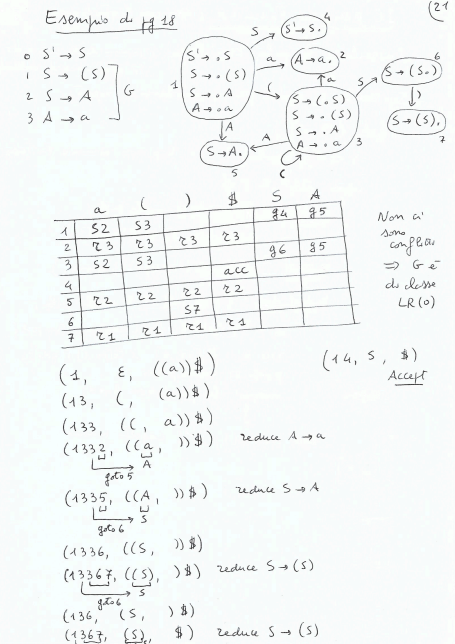 (21
Esempio di pg 18
0 S' → S
1 S → (S)
2 S → A
3 A → a
G
1
S' → . S
S → . (S)
S → . A
A → . a
S
S' → S.
4
a
A → a.
2
(
A
S → A.
5
S → (. S)
S → . (S)
S → . A
A → . a
3
a
A
(
S
S → (S.)
6
)
S → (S).
7
a ( ) $ S A
1 S2 S3 g4 g5
2 r3 r3 r3 r3
3 S2 S3 g6 g5
4 acc
5 r2 r2 r2 r2
6 S7
7 r1 r1 r1 r1
Non ci
sono
conflitti
⇒ G è
di classe
LR(0)
(1, ε, ((a))$)
(13, (, (a))$)
(133, ((, a))$)
(1332, ((a, ))$) reduce A → a
goto 5 A
(1335, ((A, ))$) reduce S → A
goto 6 S
(1336, ((S, ))$)
(13367, ((S), )$) reduce S → (S)
goto 6 S
(136, (S, )$)
(1367, (S), $) reduce S → (S)
(14, S, $)
Accept